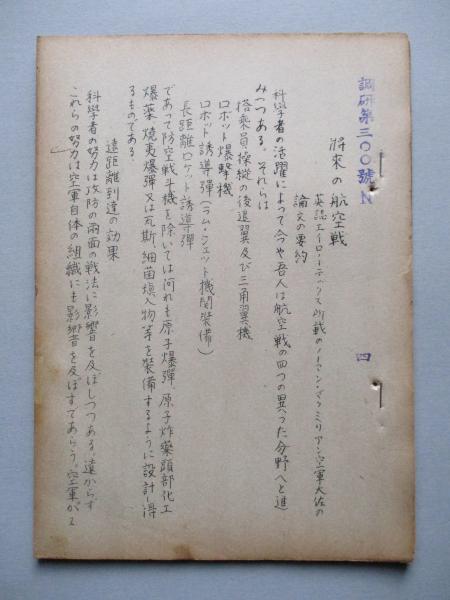 調研第三〇〇號N
四
將來の航空戦
英誌エイロノーティックス所載のノーマン・マクミリアン空軍大佐の
論文の要約
科學者の活躍によって今や吾人は航空戦の四つの異つた分野へと進
みつつある。それらは
搭乗員操縦の後退翼及び三角翼機
ロボット爆撃機
ロボット誘導彈(ラム・ジェット機関装備)
長距離ロケット誘導彈
であって防空戦斗機を除いては何れも原子爆彈、原子炸藥頭部化工
爆薬、焼夷爆彈又は瓦斯、細菌塡入物等を装備するように設計し得
るものである。
遠距離到達の効果
科學者の努力は攻防の両面の戦法に影響を及ぼしつつある。遠からず
これらの努力は空軍自体の組織にも影響を及ぼすであらう。空軍がる